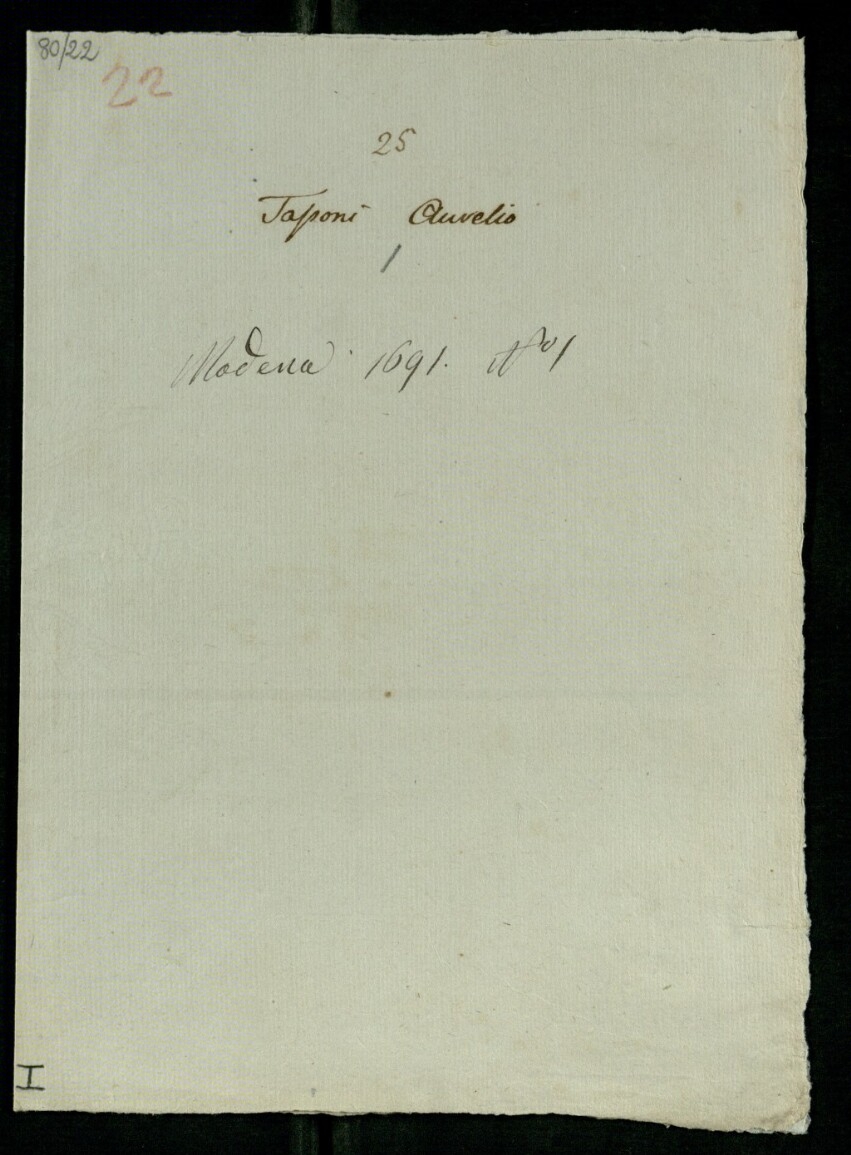 80/22
22
25
Taſsoni Aurelio
1
Modena 1691. Nº 1
I